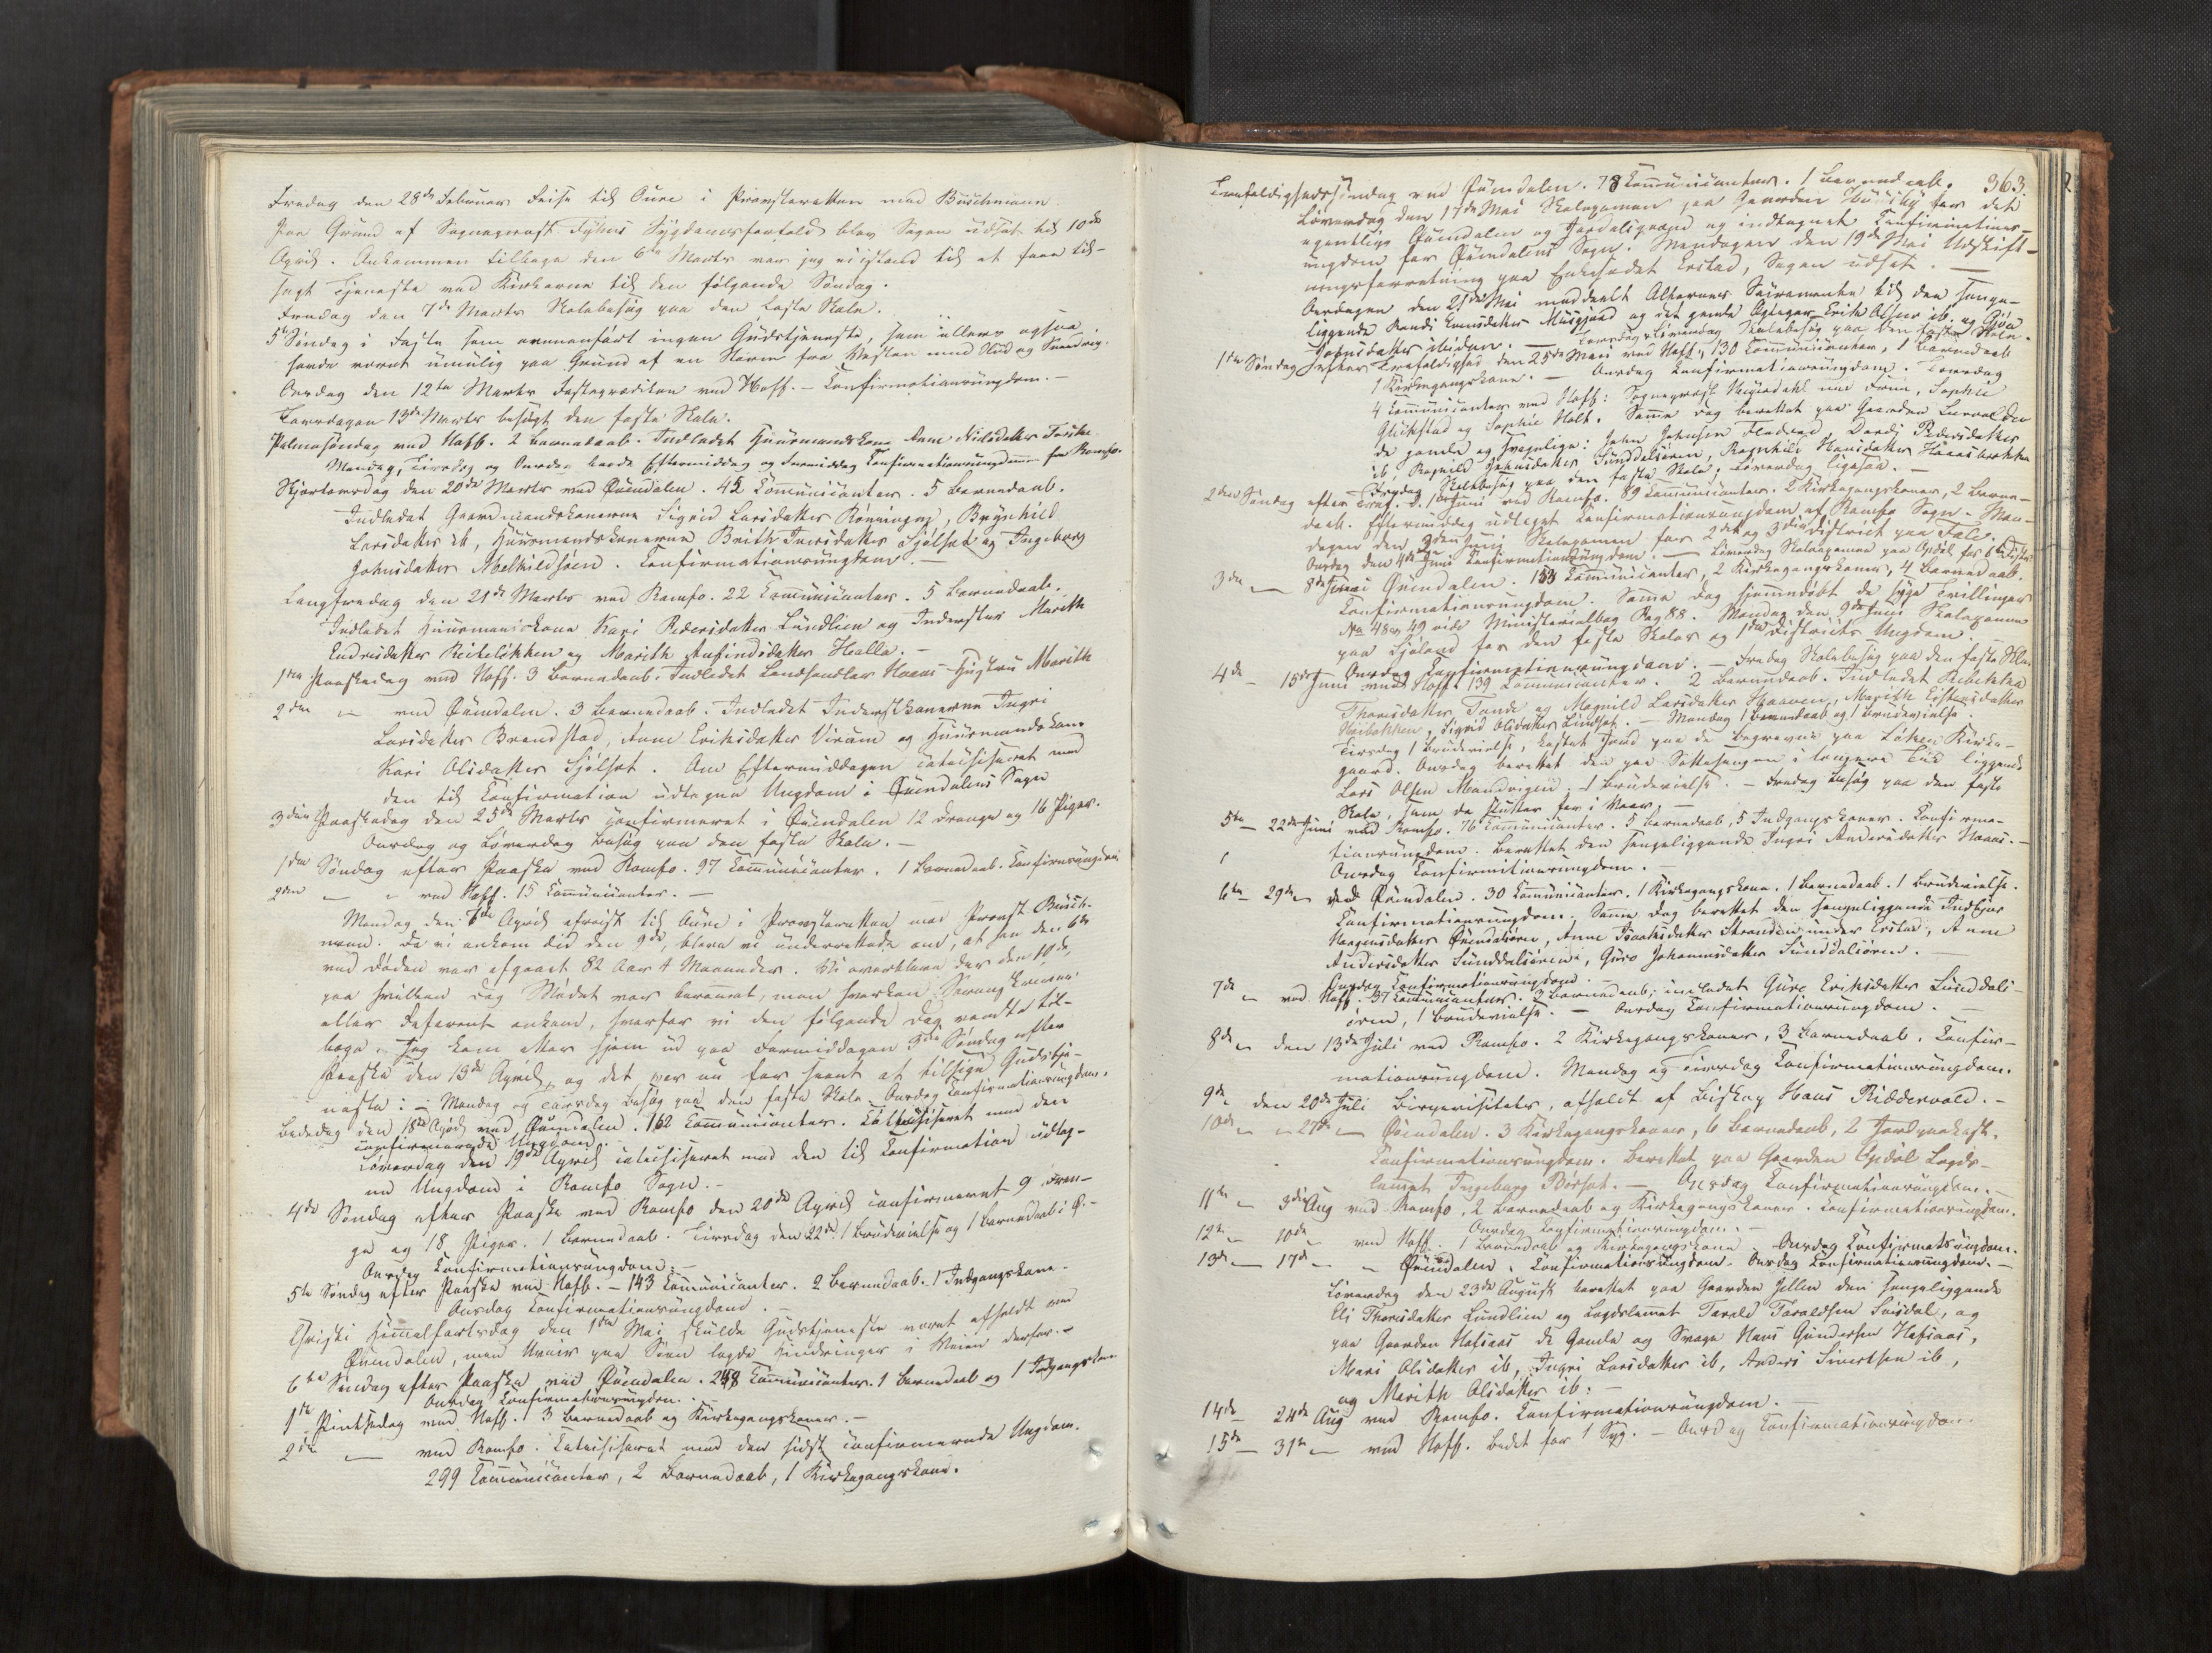 Fredag den 28de Februar Reise til Oure i Provsteretten med Buschmann.
Paa Grund af Sogneprest Fyhns Sygdomsforfald blev Sagen udsat til 10de
April. Ankommen tilbage den 6te Marts var jeg ei istand til at faae til-
sagt Tjeneste ved Kirkerne til den følgende Søndag.
Fredag den 7de Marts Skolebesøg paa den faste Skole.
5te Søndag i Faste som ovenanført ingen Gudstjeneste, som ellers ogsaa
havde været umulig paa Grund af en Storm fra Vesten med Slud og
Onsdag den 12te Marts Fasteprædiken ved Hoff. - Confirmationsungdom. -
Torsdagen 13de Marts besøgt den faste Skole.
Palmesøndag ved Hoff. 2 Barnedaab. Indledet Huusmandskone Ane Nielsdatter
Mandag, Tirsdag og Onsdag havde Eftermiddag og Formiddag Confirmationsungdommen fra Romfo.
Skjertorsdag den 20de Marts ved Øxendalen. 42 Communicanter. 5 Barnedaab.
Indledet Gaardmandskonerne Sigrid Larsdatter Rønningen, Brynhild
Larsdatter ib, Huusmandskonerne Brith Iversdatter Sjølset og Ingeborg
Johnsdatter . Confirmationsungdom. -
Langfredag den 21de Marts ved Romfo. 22 Communicanter. 5 Barnedaab.
Indledet Huusmandskone Kari Pedersdatter Lundlien og Inderster Marith
Endresdatter og Marith Arfindsdatter Halle. -
1ste Paaskedag ved Hoff. 3 Barnedaab. Indledet Landhandler Hustru Marith
2den " ved Øxendalen. 3 Barnedaab. Indledet Inderstkonerne Ingri
Larsdatter Brandstad, Anne Eriksdatter Viram og Huusmandskone
Kari Olsdatter Sjølset. Om Eftermiddagen catechiseret med
den til Confirmation udtagne Ungdom i Øxendalens Sogn
3die Paaskedag den 25de Marts confirmeret i Øxendalen 12 Drenge og 16 Piger.
Onsdag og Løverdag Besøg paa den faste Skole. -
1ste Søndag efter Paaske ved Romfo. 97 Communicanter. 1 Barnedaab. Confirmsungdom.
2den - " ved Hoff. 15 Communicanter. -
Mandag den April afreist til Oure i Provsteretten med Provst Busch-
mann. Da vi ankom did den 9de, bleve vi underrettede om, at han den 6te
ved Døden var afgaaet 82 Aar 4 Maaneder. Vi overblev der den 10de,
paa hvilken Dag Mødet var berammet, men hverken
eller Deferent ankom, hvorfor vi den følgende Dag vendte til-
bage. Jeg kom atter hjem ud paa Formiddagen 3die Søndag efter
Paaske den 13de April, og det var nu for seent at tilsige Gudstje-
neste: - Mandag og Torsdag Besøg paa den faste Skole. Onsdag Confirmationsungdom.
Bededag den 18de April ved Øxendalen. 162 Communicanter. Catechiseret med den
confirmerede Ungdom.
Løverdag den 19de April catechiseret med den til Confirmation udtag-
ne Ungdom i Romfo Sogn. -
4de Søndag efter Paaske ved Romfo den 20de April confirmeret 9 Dren-
ge og 18 Piger. 1 Barnedaab. Tirsdag den 22de 1 Brudevielse og 1 Barnedaab i Ø. -
Onsdag Confirmationsungdom: -
5te Søndag efter Paaske ved Hoff. - 143 Communicanter. 2 Barnedaab. 1 Indgangskone.
Onsdag Confirmationsungdom. -
Christi Himmelfartsdag den 1ste Mai skulde Gudstjeneste været afholdt ved
Øxendalen, men Uveir paa Søen lagde Hindringer i Veien derfor. -
6te Søndag efter Paaske ved Øxendalen. Communicanter. 1 Barnedaab og 1 Indgangskone
Onsdag Confirmationsungdom.
1ste Pintsedag ved Hoff. 3 Barnedaab og Kirkegangskoner. -
2den - ved Romfo. Catechiseret med den sidst confirmerede Ungdom.
299 Communicanter, 2 Barnedaab, 1 Kirkegangskone.
363.
Trefoldighedssøndag ved Øxendalen. 78 Communicanter. 1 Barnedaab.
Løverdag den 17de Mai Skoleexamen paa Gaarden Huusby for det
egentlige Øxendalen og Jordalsgrænd og indtegnet Confirmations-
ungdom for Øxendalens Sogn. Mandagen den 19de Mai Udskift-
ningsforretning paa Enkesædet Erstad, Sagen udsat. -
Onsdagen den 21de Mai meddeelt Alterens Sacramente til den senge-
liggende Randi Musgjerd og det gamle Ægtepar Erik Olsen ib. og Gjøa
Johnsdatter . - Torsdag og Løverdag Skolebesøg paa den faste Skole.
1ste Søndag efter Trefoldighed den 25de Mai ved Hoff. 130 Communicanter, 1 Barnedaab
1 Kirkegangskone. - Onsdag Confirmationsungdom. Torsdag
4 Communicanter ved Hoff: Sogneprest med Frue, Sophie
Glückstad og Sophie Holt. Samme Dag berettet paa Gaarden
de gamle og svagelige: John Johnsen Dordi Pedersdatter
ib, Ragnild Johnsdatter Sunddalsøren, Ragnhild Hansdatter
Fredag Skolebesøg paa den faste Skole, Løverdag ligesaa. -
2den Søndag efter Tref. d. 1ste Juni ved Romfo. 89 Communicanter. 2 Kirkegangskoner, 2 Barne-
daab. Eftermiddag udtaget Confirmationsungdom af Romfo Sogn. Man-
dagen den 2den Juni Skoleexamen for 2det og 3die District paa Fale.
Onsdag den 4de Juni Confirmationsungdom. - Løverdag Skoleexamen paa Opdøl for 6te Distr.
3die - 8de Juni Øxendalen. 153 Communicanter, 2 Kirkegangskoner, 4 Barnedaab.
Confirmationsungdom. Samme Dag hjemmedøbt de syge Tvillinger
No 48 og 49 vide Ministerialbog Pag 88. Mandag den 9de Juni Skoleexamen
paa Sjøland for den faste Skoles og 1ste Districts Ungdom. -
Onsdag Confirmationsungdom. - Fredag Skolebesøg paa den faste Skole.
4de - 15de Juni ved Hoff. 139 Communicanter. 2 Barnedaab. Indledet Rebekka
Thoresdatter Tande og Magnild Larsdatter Haaven, Marith Eistensdatter
Høibakken, Sigrid Olsdatter Lindset. - Mandag 1 Barnedaab og 1 Brudevielse.
Tirsdag 1 Brudevielse, kastet Jord paa de Begravne paa Løken Kirke-
gaard. Onsdag berettet den paa Sottesengen i længere Tid liggende
Lars Olsen 1 Brudevielse. - Fredag Besøg paa den faste
Skole, som da sluttes for i Vaar. -
5te - 22de Juni ved Romfo. 76 Communicanter. 5 Barnedaab, 5 Indgangskoner. Confirma-
tionsungdom. Berettet den sengeliggende Ingri Andersdatter Hoaas. -
Onsdag Confirmationsungdom. -
6te - 29de - ved Øxendalen. 30 Communicanter. 1 Kirkegangskone. 1 Barnedaab. 1 Brudevielse.
Confirmationsungdom. Samme Dag berettet den sengeliggende Indbjør
Øxendalsøren, Anne Isaaksdatter Stranden under Erstad, Anne
Andersdatter Sunddalsøren, Guro Johannesdatter Sunddalsøren. -
Onsdag Confirmationsungdom. -
7de " ved Hoff. 37 Communicanter. 2 Barnedaab; indledet Guro Eriksdatter Sunddals-
øren, 1 Brudevielse. - Onsdag Confirmationsungdom. -
8de " den 13de Juli ved Romfo. 2 Kirkegangskoner, 3 Barnedaab. Confir-
mationsungdom. Mandag og Tirsdag Confirmationsungdom.
9de " den 20de Juli Bispevisitats, afholdt af Biskop Hans Riddervold. -
10de " " 27de " Øxendalen. 3 Kirkegangskoner, 6 Barnedaab, 2 Jordpaakast.
Confirmationsungdom. Berettet paa Gaarden Opdøl Legds-
lemmet Ingeborg Børset. - Onsdag Confirmationsungdom. -
11te - 3die Aug ved Romfo, 2 Barnedaab og Kirkegangskoner. Confirmationsungdom.
Onsdag Confirmationsungdom. -
12te - 10de " ved Hoff. 1 Barnedaab og Kirkegangskone. Onsdag Confirmatsungdom.
13de - 17de - " Øxendalen. Confirmationsungdom. Onsdag Confirmationsungdom. -
Løverdag den 23de August berettet paa Gaarden Jellen den sengeliggende
Eli Thoresdatter Lundlien og Legdslemmet Tarald Taraldsen , og
paa Gaarden Hafsaas de Gamle og Svage Hans Gundersen Hafsaas,
Mari Olsdatter ib, Ingri Larsdatter ib, Anders Sivertsen ib,
og Marith Olsdatter ib: -
14de - 24de Aug ved Romfo. Confirmationsungdom. -
15de - 31te - ved Hoff. Bedet for 1 Syg. - Onsdag Confirmationsungdom.